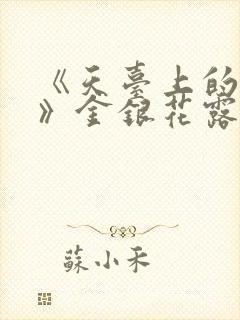 《天臺上的
》金銀花露
蘇小禾